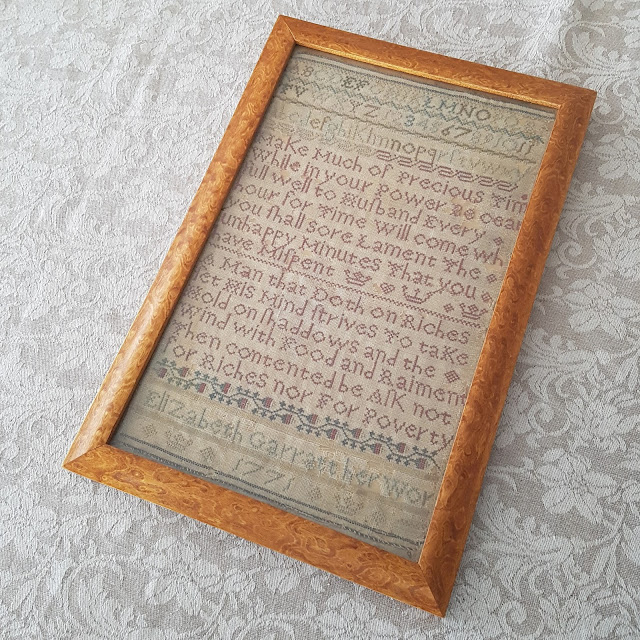 B EF LMNO
2 3 4 67
efghikhmnopqrs
Make Much of Precious Tim
While in your Power Be
ull well to Husband Every
hour for Time Will come wh
you shall sore Lament The
unhappy Minutes That you
ave Misspent
A Man that Doth on Riches
set His Mind strives To take
Hold on shaddows and the
Wind with Food and Raiment
Then contented be ASK not
For Riches nor For Poverty
Elizabeth Garratt her Wor
1771